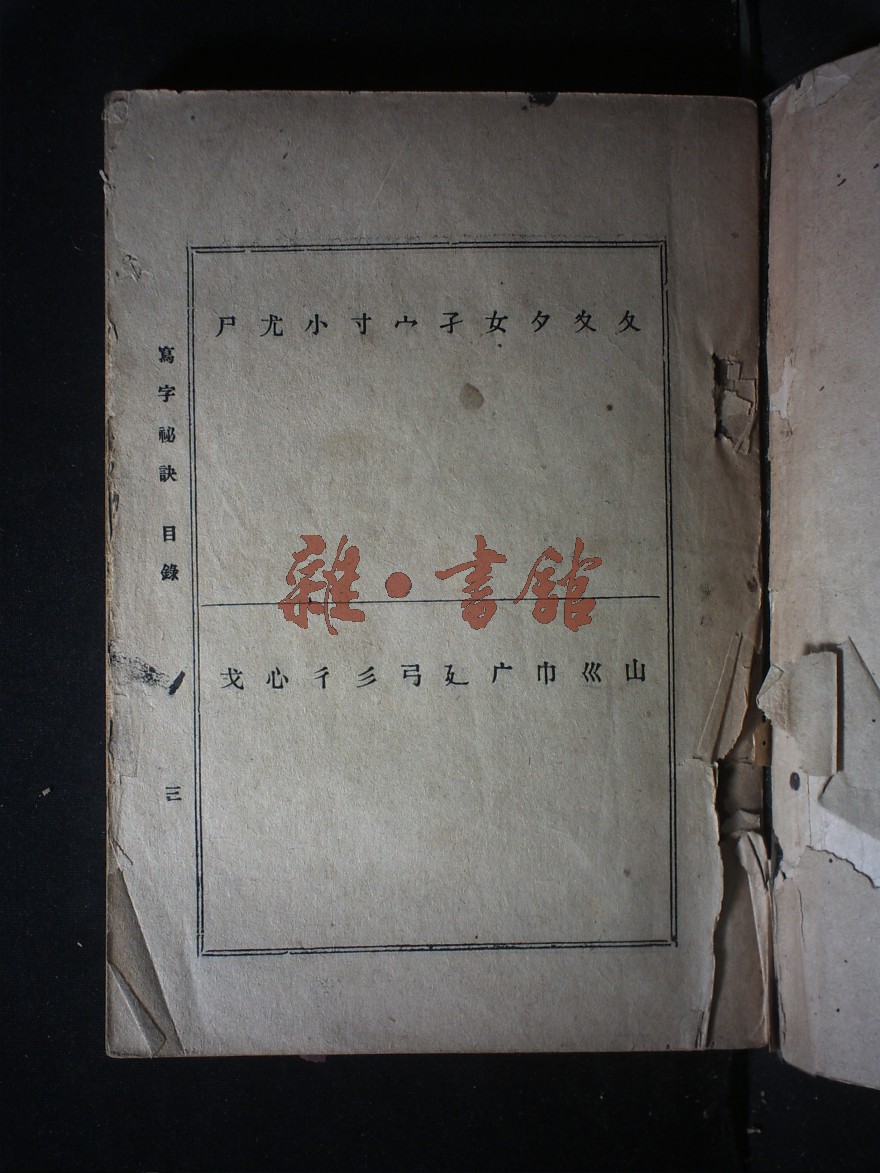 夂夊夕女孑宀寸小尤尸
山巛巾广廴弓彡彳心戈
寫字祕訣 目錄 三
雜·書館